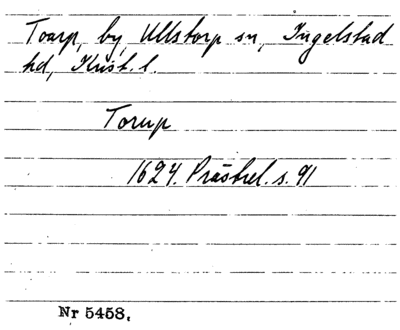 Toarp, by, Ullstorp sn, Ingelstad
hd, Krist. l.
Torup
1624. Prästrel. s. 91
Nr 5458.